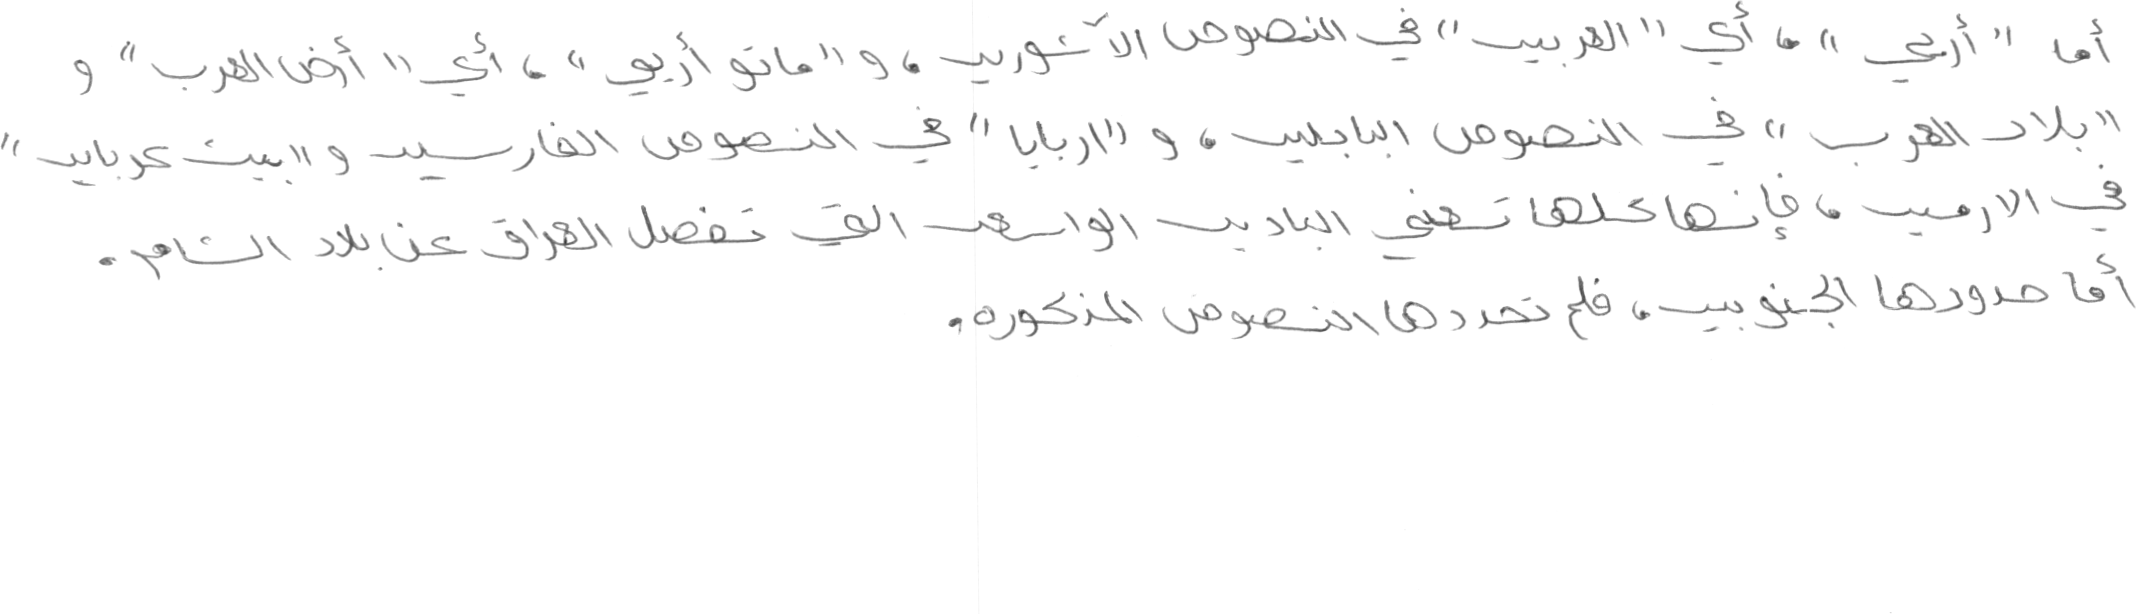 أما "أربي"، أي "العربية" في النصوص الآشورية، و"ماتو أربي"، أي "أرض العرب" و
"بلاد العرب" في النصوص البابلية، و"اربايا" في النصوص الفارسية و"بيث عرباية"
في الارمية، فإنها كلها تعني البادية الواسعة التي تفصل العراق عن بلاد الشام.
أما حدودها الجنوبية، فلم تحددها النصوص المذكوره.